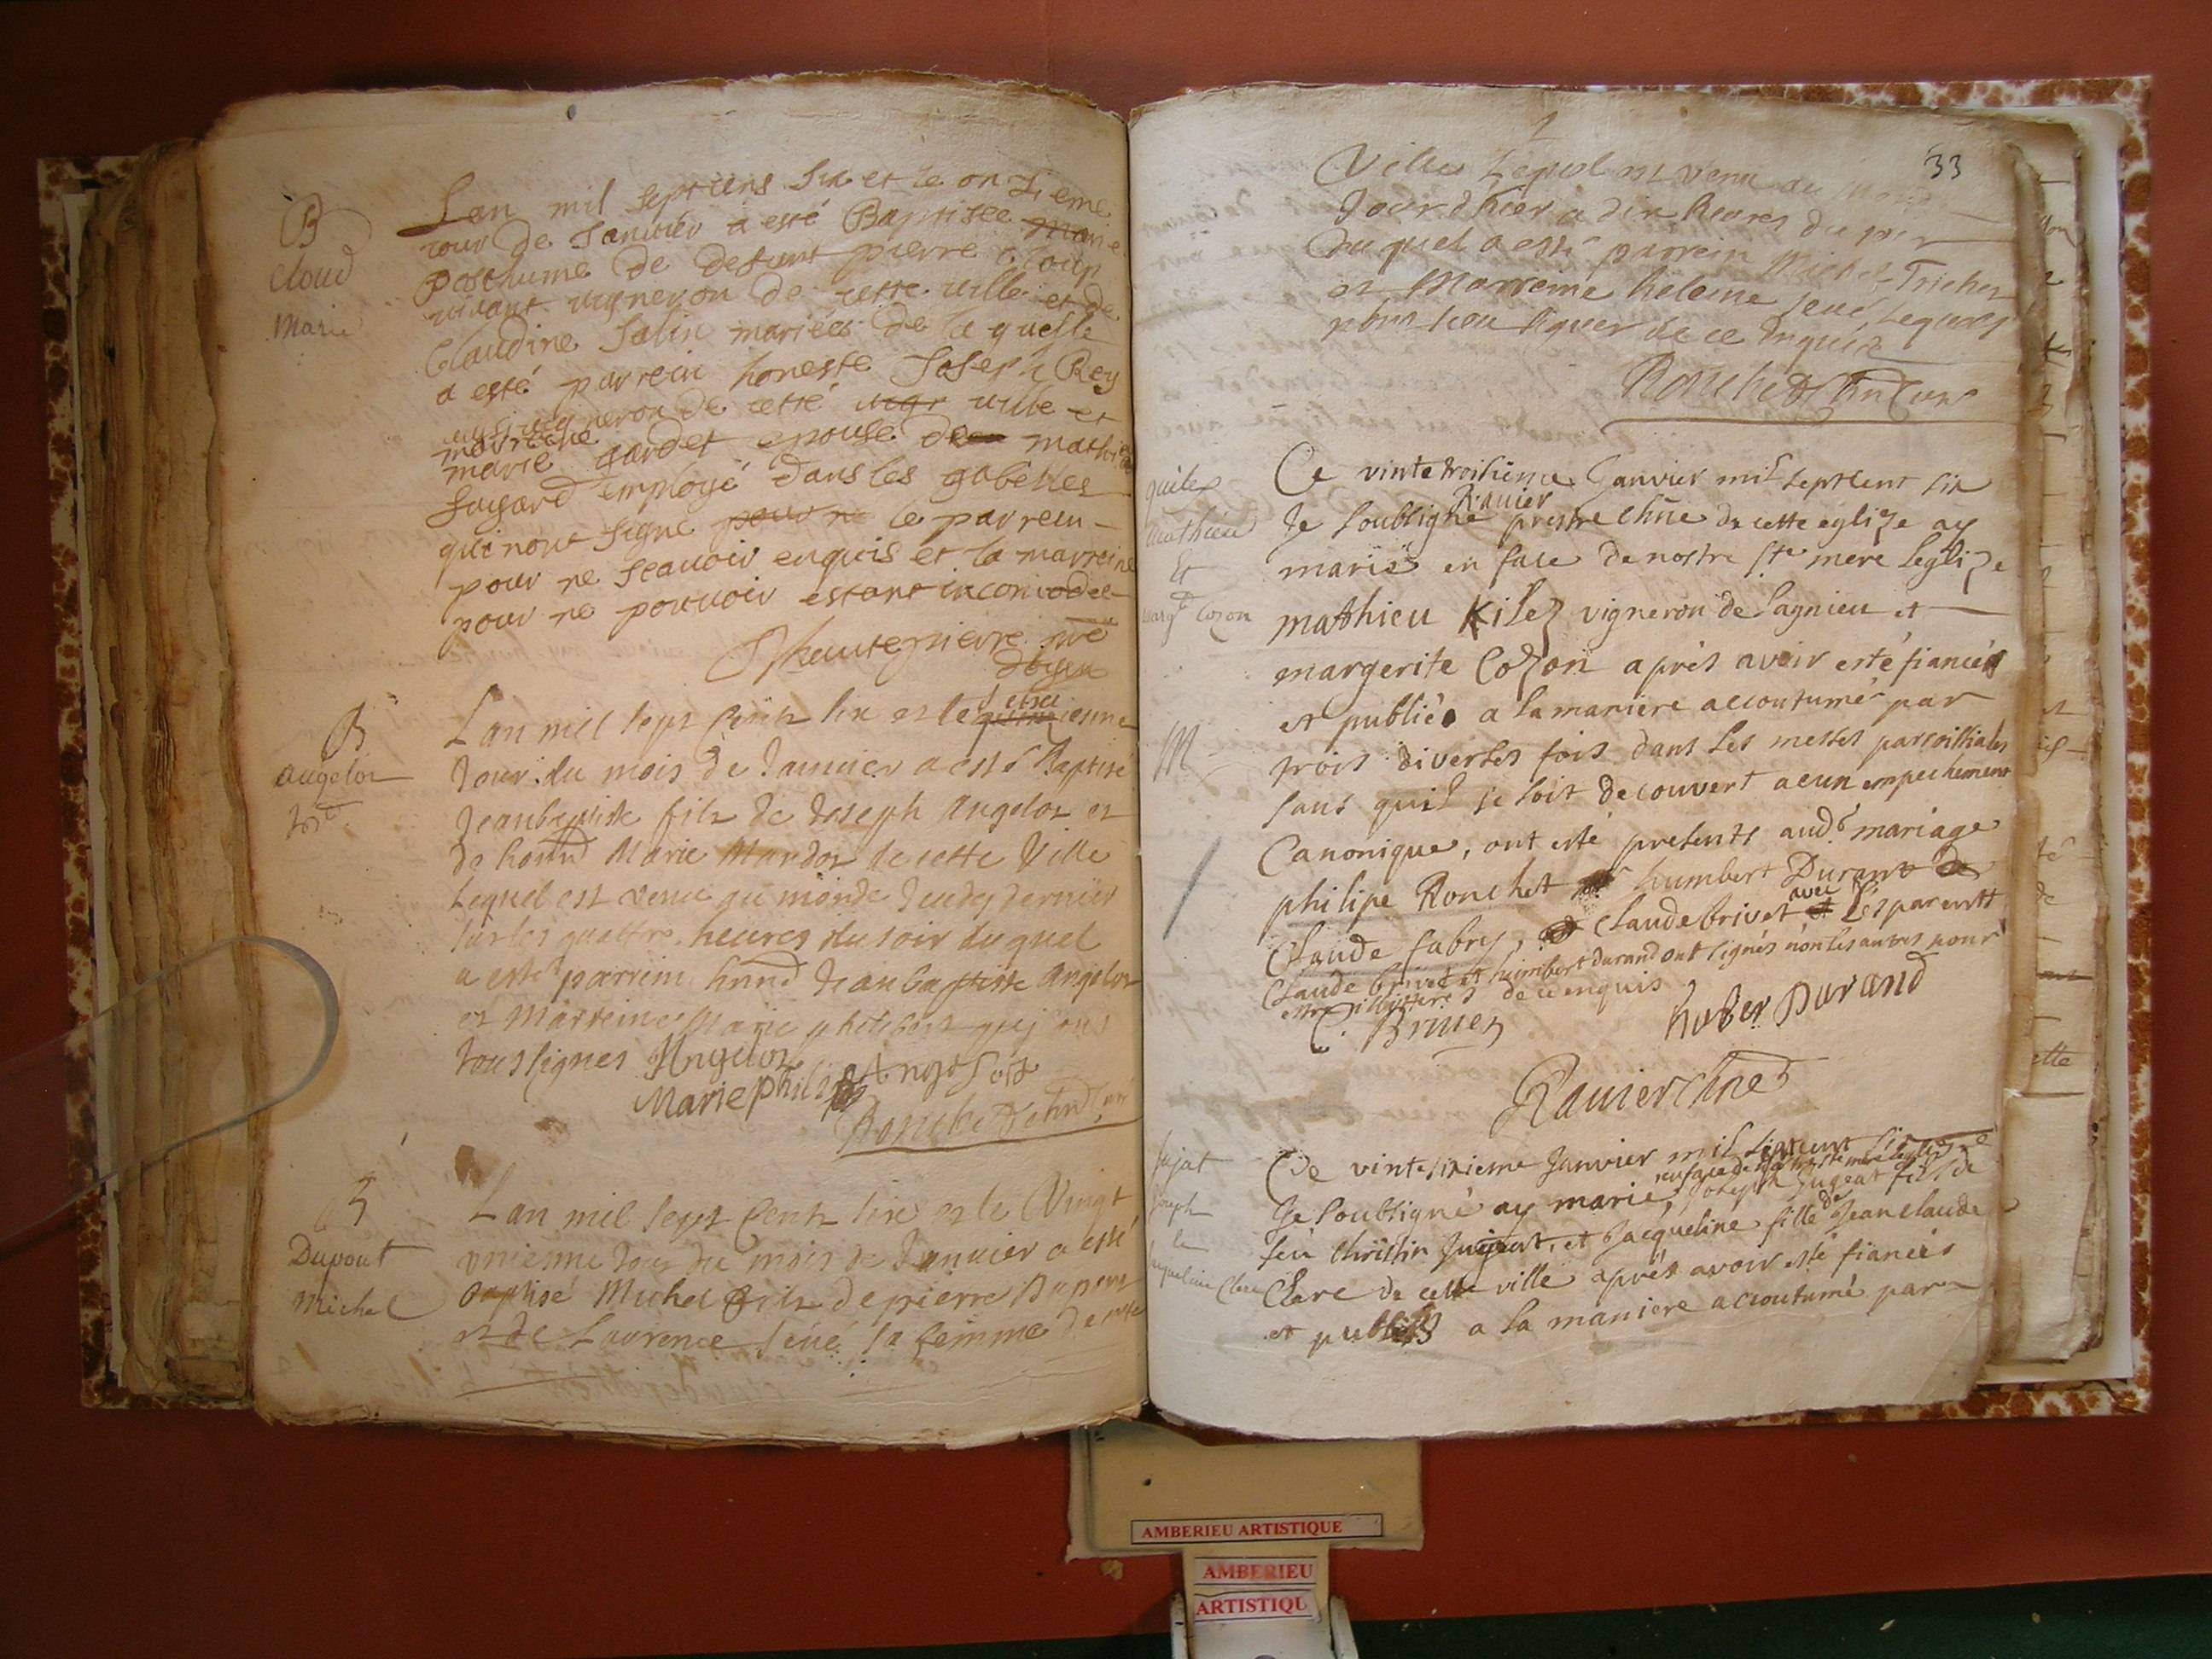 B
Cloud
Marie
Lan mil septcens six et le onzieme
iour de Januier a esté Baptisée marie
posthume de defunt pierre Cloup
viuant vigneron de cette ville et de
Claudine Salin mariées de la quelle
a esté parrein honeste Joseph Rey
aussi vigneron de cette ville et
marreine
marie gardet epouse de mathieu
fagard employé dans les gabelles
qui nont signe le parrein
pour ne scauoir enquis et la marreine
pour ne pouuoir estant incomodee
Hautepierre
doyen
B
augelot
Lan mil sept Cents six et le seizieme
Jour du mois de Januier a esté Baptisé
Jeanbaptiste fils de Joseph Angelot et
de honnd Marie Mandot de cette Ville
Lequel est venu au monde Jeudy dernier
sur les quattre heures du soir duquel
a esté parrein honnd Jeanbaptiste Angelot
et Marreine Marie philibert qui ont
tous signes Angelot
Marie phili
Ronchet
B
Dupont
Michel
Lan mil sept Cents six et le Vingt
vnieme Jour du mois de Januier a esté
baptisé Michel fils de pierre Dupont
et de Laurence séué sa femme de cette
33
Ville Lequel est venu au monde
Jour d'hier a dix heures du soir
duquel a esté parrein Michel Trichet
et Marreine heleine seué, Lequels
nont sceu signer de ce Enquis
Ronchet
quilex
mathieu
Et
margte Cozon
M
Ce vintetroisième Janvier mil septcent six
Je soubsigné Rauier prestre chne de cette eglize ay
mariés en face de nostre ste mere Leglize
matthieu Kilez vigneron de Lagnieu et
margerite Cozon aprés avoir esté fiancés
et publiés a la maniere accoutumé par
trois diverses fois dans les messes paroissiales
sans quil se soit decouvert aucun empechement
Canonique, ont esté presents audt mariage
philipe Ronchet humbert Durant
Claude fabry, Claude brivet avec les parents
Claude brivet et humbert durand ont signés non les autres pour
estre illitterés de ce enquis
C. Briuet
huber Durand
Rauier chne
Jujat
Joseph
et
Jaqueline Clerc
Ce vintesixieme Janvier mil septcent six
Je soubsigné ay marié, en face de nostre ste mere leglize Joseph Jugeat fils de
feu Christin Jugeat, et Jacqueline fille de Jean claude
Clerc de cette ville aprés avoir esté fiancés
et publiés a la maniere accoutumé par
AMBERIEU ARTISTIQUE
AMBERIEU
ARTISTIQU